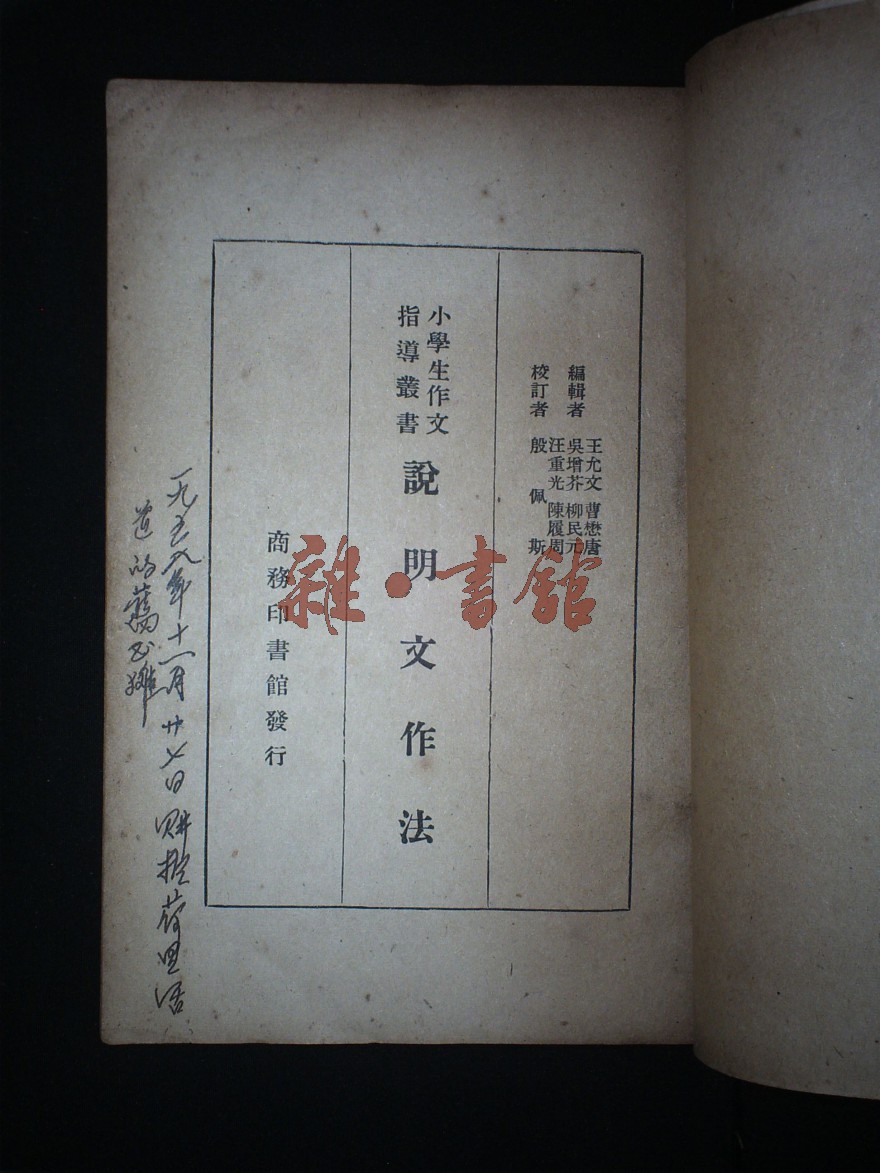 編輯者
王允文 曹懋唐
吳增芥 柳民元
汪重光 陳履周
校訂者 殷佩斯
小學生作文
指導叢書
說明文作法
商務印書館發行
一九五九年十一月廿七日购於荷里活
道的舊书攤
雜·書館